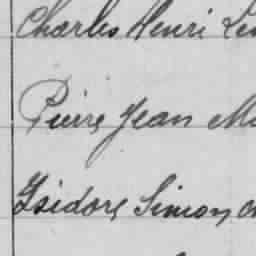 Charles Henri
Pierre Jean
Isidore Simon